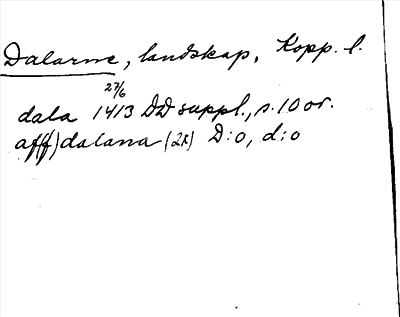 Dalarne, landskap, Kopp. l.
27/6
dala 1413 DD suppl., s. 10 or.
aff) dalana (2x) D:o, d:o